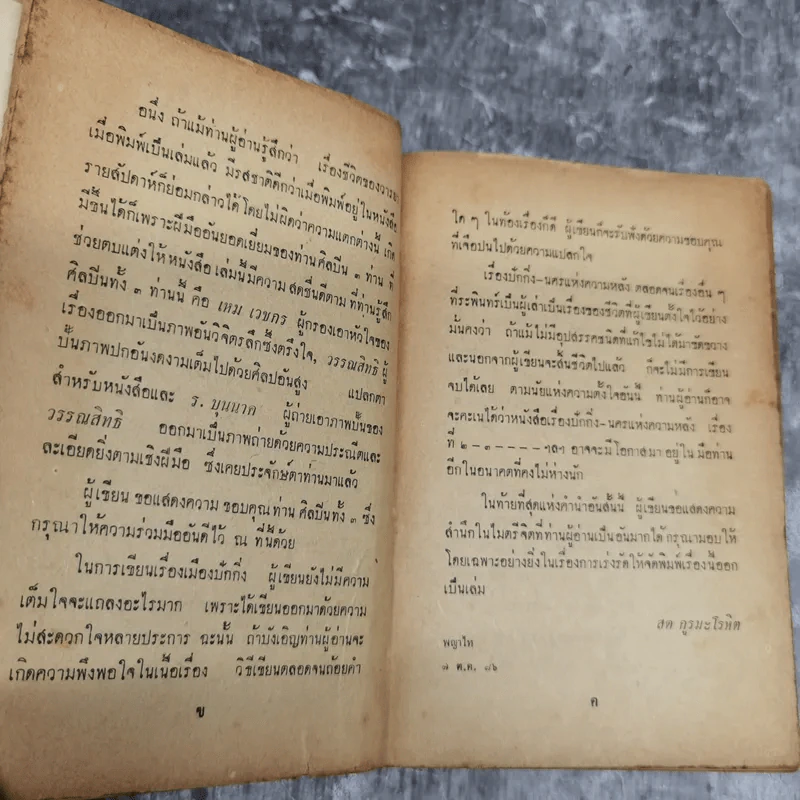 อนึ่ง ถ้าแม้ท่านผู้อ่านรู้สึกว่า เรื่องชีวิตของวารยา
เมื่อพิมพ์เป็นเล่มแล้ว มีรสชาติดีกว่าเมื่อพิมพ์อยู่ในหนังสือ
รายสัปดาห์ก็ย่อมกล่าวได้ โดยไม่ผิดว่าความแตกต่างนี้ เกิด
มีขึ้นได้ก็เพราะฝีมืออันยอดเยี่ยมของท่านศิลปิน ๓ ท่าน ที่
ช่วยตบแต่งให้หนังสือเล่มนี้มีความสดชื่นดีตาม ที่ท่านรู้สึก
ศิลปินทั้ง ๓ ท่านนี้ คือ เหม เวชกร ผู้กรองเอาหัวใจของ
เรื่องออกมาเป็นภาพอันวิจิตรลึกซึ้งตรึงใจ, วรรณสิทธิ ผู้
ปั้นภาพปกอันงดงามเต็มไปด้วยศิลปอันสูง แปลกตา
สำหรับหนังสือและ ร. บุนนาค ผู้ถ่ายเอาภาพปั้นของ
วรรณสิทธิ ออกมาเป็นภาพถ่ายด้วยความประณีตและ
ละเอียดยิ่งตามเชิงฝีมือ ซึ่งเคยประจักษ์ตาท่านมาแล้ว
ผู้เขียน ขอแสดงความ ขอบคุณท่าน ศิลปินทั้ง ๓ ซึ่ง
กรุณาให้ความร่วมมืออันดีไว้ ณ ที่นี้ด้วย
ในการเขียนเรื่องเมืองปักกิ่ง ผู้เขียนยังไม่มีความ
เต็มใจจะแถลงอะไรมาก เพราะได้เขียนออกมาด้วยความ
ไม่สะดวกใจหลายประการ ฉะนั้น ถ้าบังเอิญท่านผู้อ่านจะ
เกิดความพึงพอใจในเนื้อเรื่อง วิธีเขียนตลอดจนถ้อยคำ
ข
ใด ๆ ในท้องเรื่องก็ดี ผู้เขียนก็จะรับฟังด้วยความขอบคุณ
ที่เจือปนไปด้วยความแปลกใจ
เรื่องปักกิ่ง-นครแห่งความหลัง ตลอดจนเรื่องอื่น ๆ
ที่ระพินทร์เป็นผู้เล่าเป็นเรื่องของชีวิตที่ผู้เขียนตั้งใจไว้อย่าง
มั่นคงว่า ถ้าแม้ไม่มีอุปสรรคชนิดที่แก้ไขไม่ได้มาขัดขวาง
และนอกจากผู้เขียนจะสิ้นชีวิตไปแล้ว ก็จะไม่มีการเขียน
จบได้เลย ตามนัยแห่งความตั้งใจอันนี้ ท่านผู้อ่านก็อาจ
จะคะเนได้ว่าหนังสือเรื่องปักกิ่ง-นครแห่งความหลัง เรื่อง
ที่ ๒ – ๓ – – – – – ฯลฯ อาจจะมีโอกาสมา อยู่ใน มือท่าน
อีกในอนาคตที่คงไม่ห่างนัก
ในท้ายที่สุดแห่งคำนำอันสั้นนี้ ผู้เขียนขอแสดงความ
สำนึกในไมตรีจิตที่ท่านผู้อ่านเป็นอันมากได้ กรุณามอบให้
โดยเฉพาะอย่างยิ่งในเรื่องการเร่งรัดให้จัดพิมพ์เรื่องนี้ออก
เป็นเล่ม
สด กูรมะโรหิต
พญาไท
๗ ต.ค. ๘๖
ค